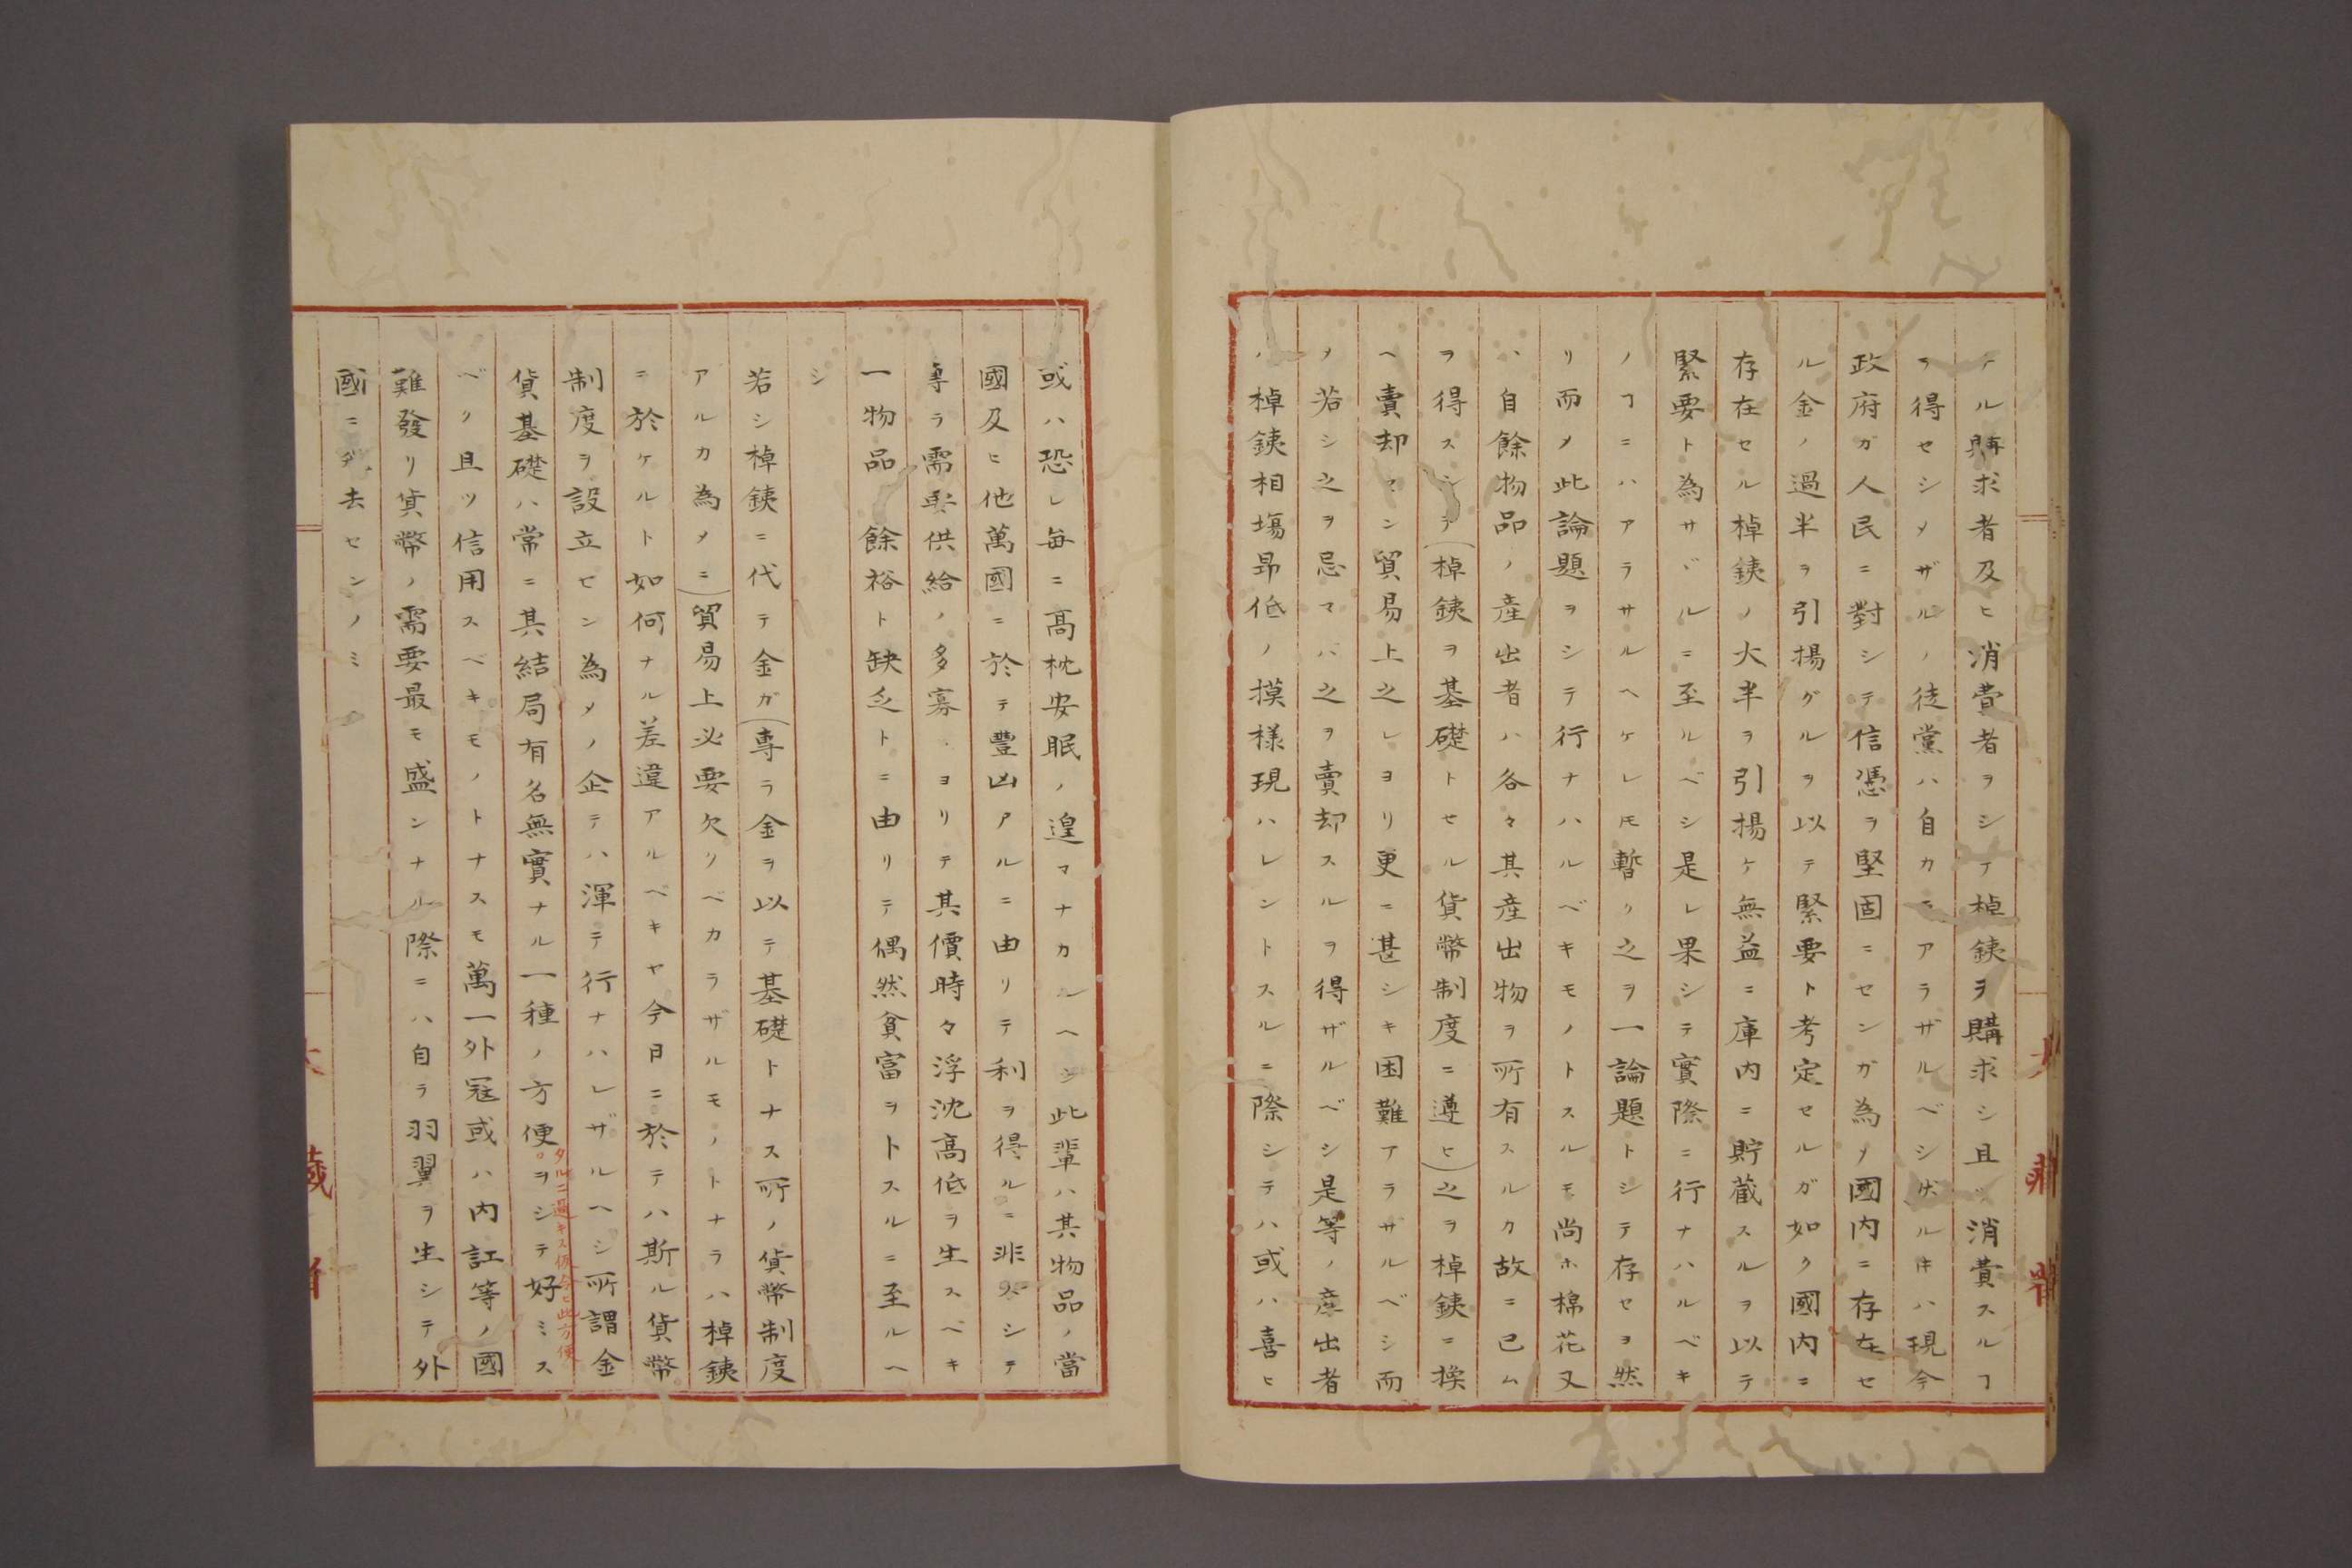 テル購求者及ヒ消費者ヲシテ棹銕ヲ購求シ且ツ消費スルヿ
ヲ得セシメザルノ徒黨ハ自カニアラザルベシ伏ルキハ現今
政府ガ人民ニ對シテ信憑ヲ堅固ニセンガ為メ國内ニ存在セ
ル金ノ過半ヲ引揚グルヲ以テ緊要ト考定セルガ如ク國内ニ
存在セル棹銕ノ大半ヲ引揚ケ無益ニ庫内ニ貯蔵スルヲ以テ
緊要ト為サヾルニ至ルベシ是レ果シテ實際ニ行ナハルベキ
ノヿニハアラサルヘケレ𪜈暫ク之ヲ一論題トシテ存セヨ然
リ而メ此論題ヲシテ行ナハルベキモノトスルモ尚ホ棉花又
ハ自餘物品ノ産出者ハ各々其産出物ヲ所有スルカ故ニ已ム
ヲ得スシテ(棹銕ヲ基礎トセル貨幣制度ニ遵ヒ)之ヲ棹銕ニ換
ヘ賣却セン貿易上之レヨリ更ニ甚シキ困難アラザルベシ而
メ若シ之ヲ忌マバ之ヲ賣却スルヲ得ザルベシ是等ノ産出者
ハ棹銕相場昻低ノ摸様現ハレントスルニ際シテハ或ハ喜ヒ
或ハ恐レ毎ニ高枕安眠ノ遑マナカルヘシ此輩ハ其物品ノ當
國及ヒ他萬國ニ於テ豐凶アルニ由リテ利ヲ得ルニ非ズシテ
專ラ需要供給ノ多寡ニヨリテ其價時々浮沈高低ヲ生スベキ
一物品ノ餘裕ト缺乏トニ由リテ偶然貧富ヲトスルニ至ルヘ
シ
若シ棹銕ニ代テ金ガ(專ラ金ヲ以テ基礎トナス所ノ貨幣制度
アルカ為メニ)貿易上必要欠クベカラザルモノトナラハ棹銕
ニ於ケルト如何ナル差違アルベキヤ今日ニ於テハ斯ル貨幣
制度ヲ設立セン為メノ企テハ渾テ行ナハレザルヘシ所謂金
貨基礎ハ常ニ其結局有名無實ナル一種ノ方便ヲシテ好ミス
タルニ過キス仮令ヒ此方便
ベク且ツ信用スベキモノトナスモ萬一外冦或ハ内訌等ノ國
難發リ貨幣ノ需要最モ盛ンナル際ニハ自ラ羽翼ヲ生シテ外
國ニ去センノミ
大藏省